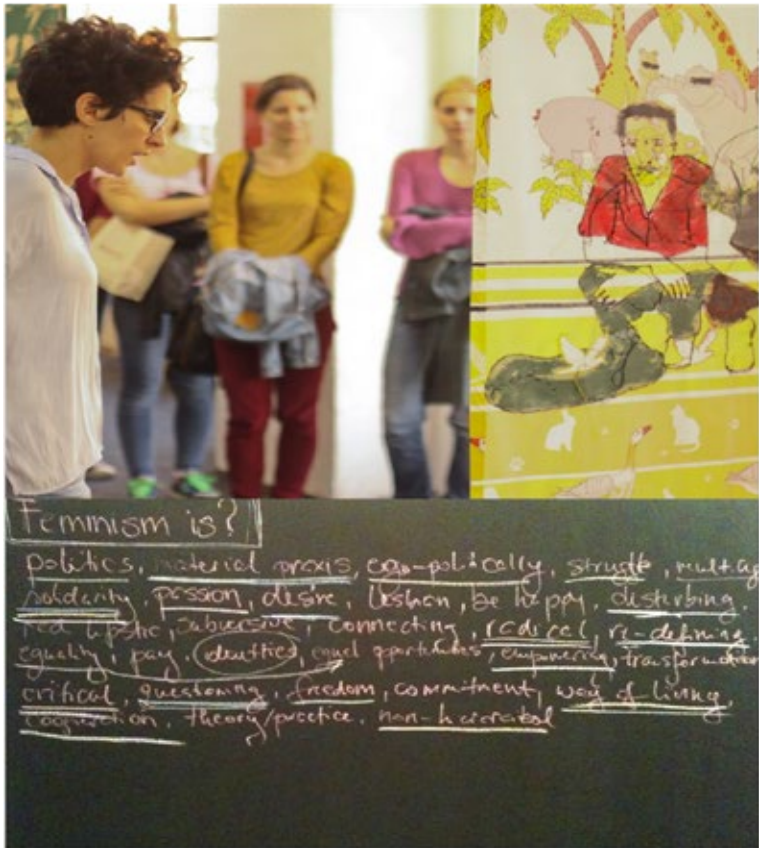 Feminism is?
politics, material praxis, ego-politically, strugle, multiple
solidarity, passion, desire, lesbian, be happy, disturbing,
red lipstic, subversive, connecting, radical, re-defining,
equality, pay, identities, equal opportunities, empowering, transformation
critical, questioning, freedom, commitment, way of living,
theory/practice, non-hierarical